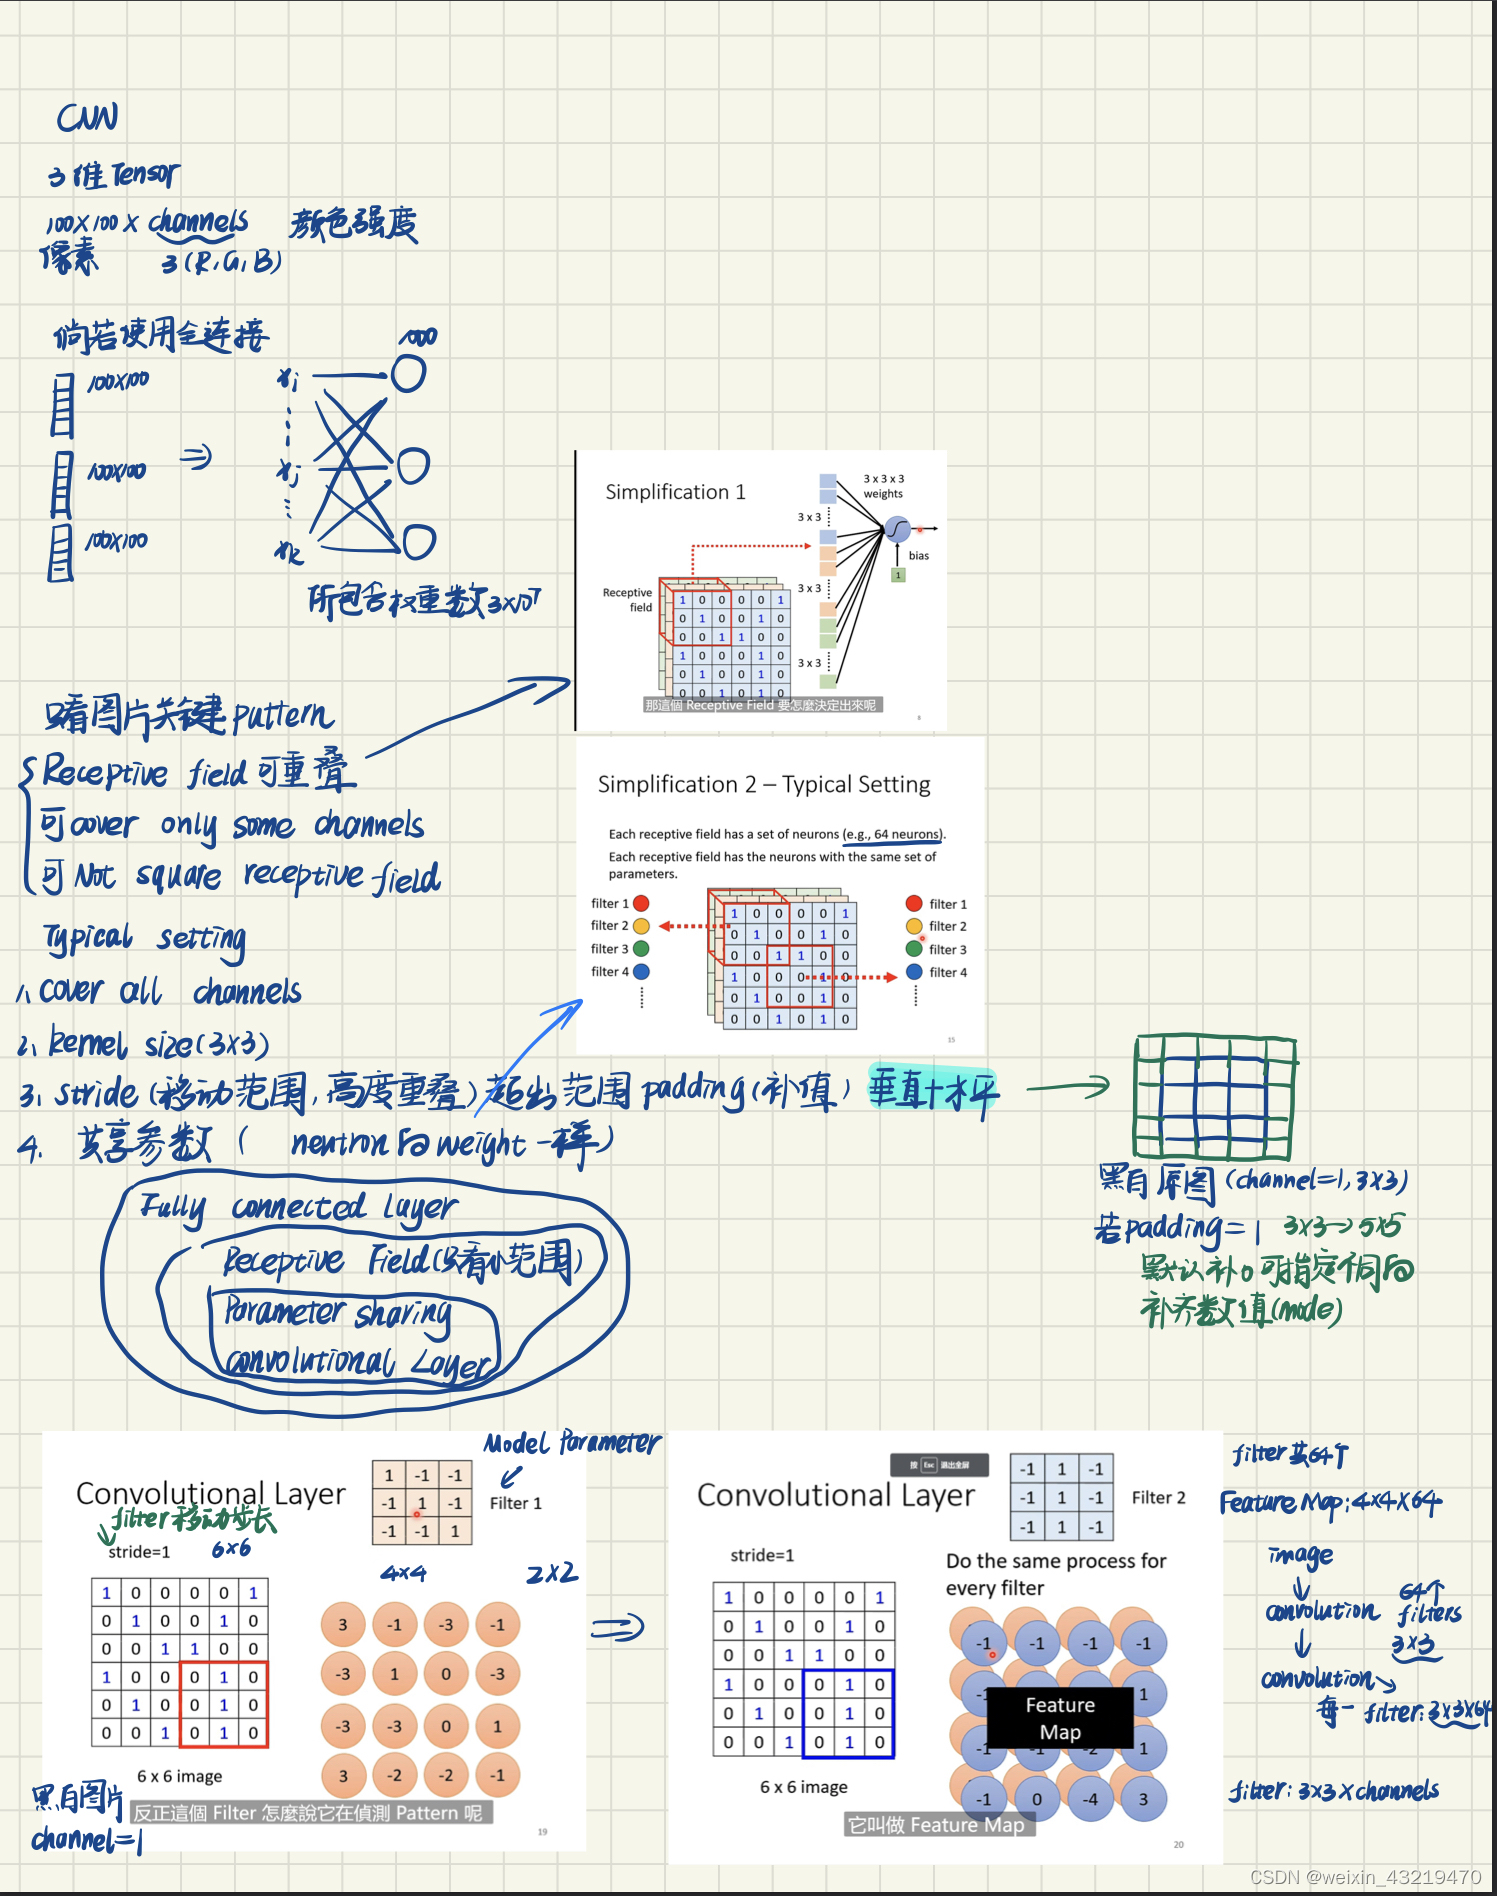 CNN
3维Tensor
100×100×channels 颜色强度
像素 3(R,G,B)
倘若使用全连接
1000
100×100
100×100
100×100
xi
xj
xk
所包含权重数3×10^7
Simplification 1
3 x 3 x 3
weights
3 x 3
bias
1
3 x 3
3 x 3
Receptive
field
1 0 0 0 0 1
0 1 0 0 1 0
0 0 1 1 0 0
1 0 0 0 1 0
0 1 0 0 1 0
0 0 1 0 1 0
那這個 Receptive Field 要怎麼決定出來呢
8
只看图片关键pattern
Receptive field 可重叠
可cover only some channels
可Not square receptive field
Typical setting
1、cover all channels
2、kernel size(3×3)
3、stride(移动范围,高度重叠)超出范围padding(补值)垂直+水平
4、共享参数( neutron的weight一样)
Simplification 2 – Typical Setting
Each receptive field has a set of neurons (e.g., 64 neurons).
Each receptive field has the neurons with the same set of
parameters.
filter 1
filter 2
filter 3
filter 4
1 0 0 0 0 1
0 1 0 0 1 0
0 0 1 1 0 0
1 0 0 0 1 0
0 1 0 0 1 0
0 0 1 0 1 0
filter 1
filter 2
filter 3
filter 4
15
黑白原图(channel=1,3×3)
若padding=1 3×3→5×5
默认补0可指定不同的
补齐数值(mode)
Fully connected Layer
Receptive Field(只看小范围)
Parameter sharing
convolutional Layer
Convolutional Layer
Model Parameter
1 -1 -1
-1 1 -1
-1 -1 1
Filter 1
filter移动步长
stride=1
6×6
4×4
2×2
1 0 0 0 0 1
0 1 0 0 1 0
0 0 1 1 0 0
1 0 0 0 1 0
0 1 0 0 1 0
0 0 1 0 1 0
3 -1 -3 -1
-3 1 0 -3
-3 -3 0 1
3 -2 -2 -1
6 x 6 image
黑白图片
channel=1
反正這個 Filter 怎麼說它在偵測 Pattern 呢
19
按 Esc 退出全屏
Convolutional Layer
-1 1 -1
-1 1 -1
-1 1 -1
Filter 2
stride=1
Do the same process for
every filter
1 0 0 0 0 1
0 1 0 0 1 0
0 0 1 1 0 0
1 0 0 0 1 0
0 1 0 0 1 0
0 0 1 0 1 0
-1 -1 -1 -1
-1 1
-1 -1 -2 1
-1 0 -4 3
Feature
Map
6 x 6 image
它叫做 Feature Map
20
filter共64个
Feature Map:4×4×64
image
convolution
64个
filters
3×3
convolution
每一filter:3×3×64
filter:3×3×channels
CSDN @weixin_43219470